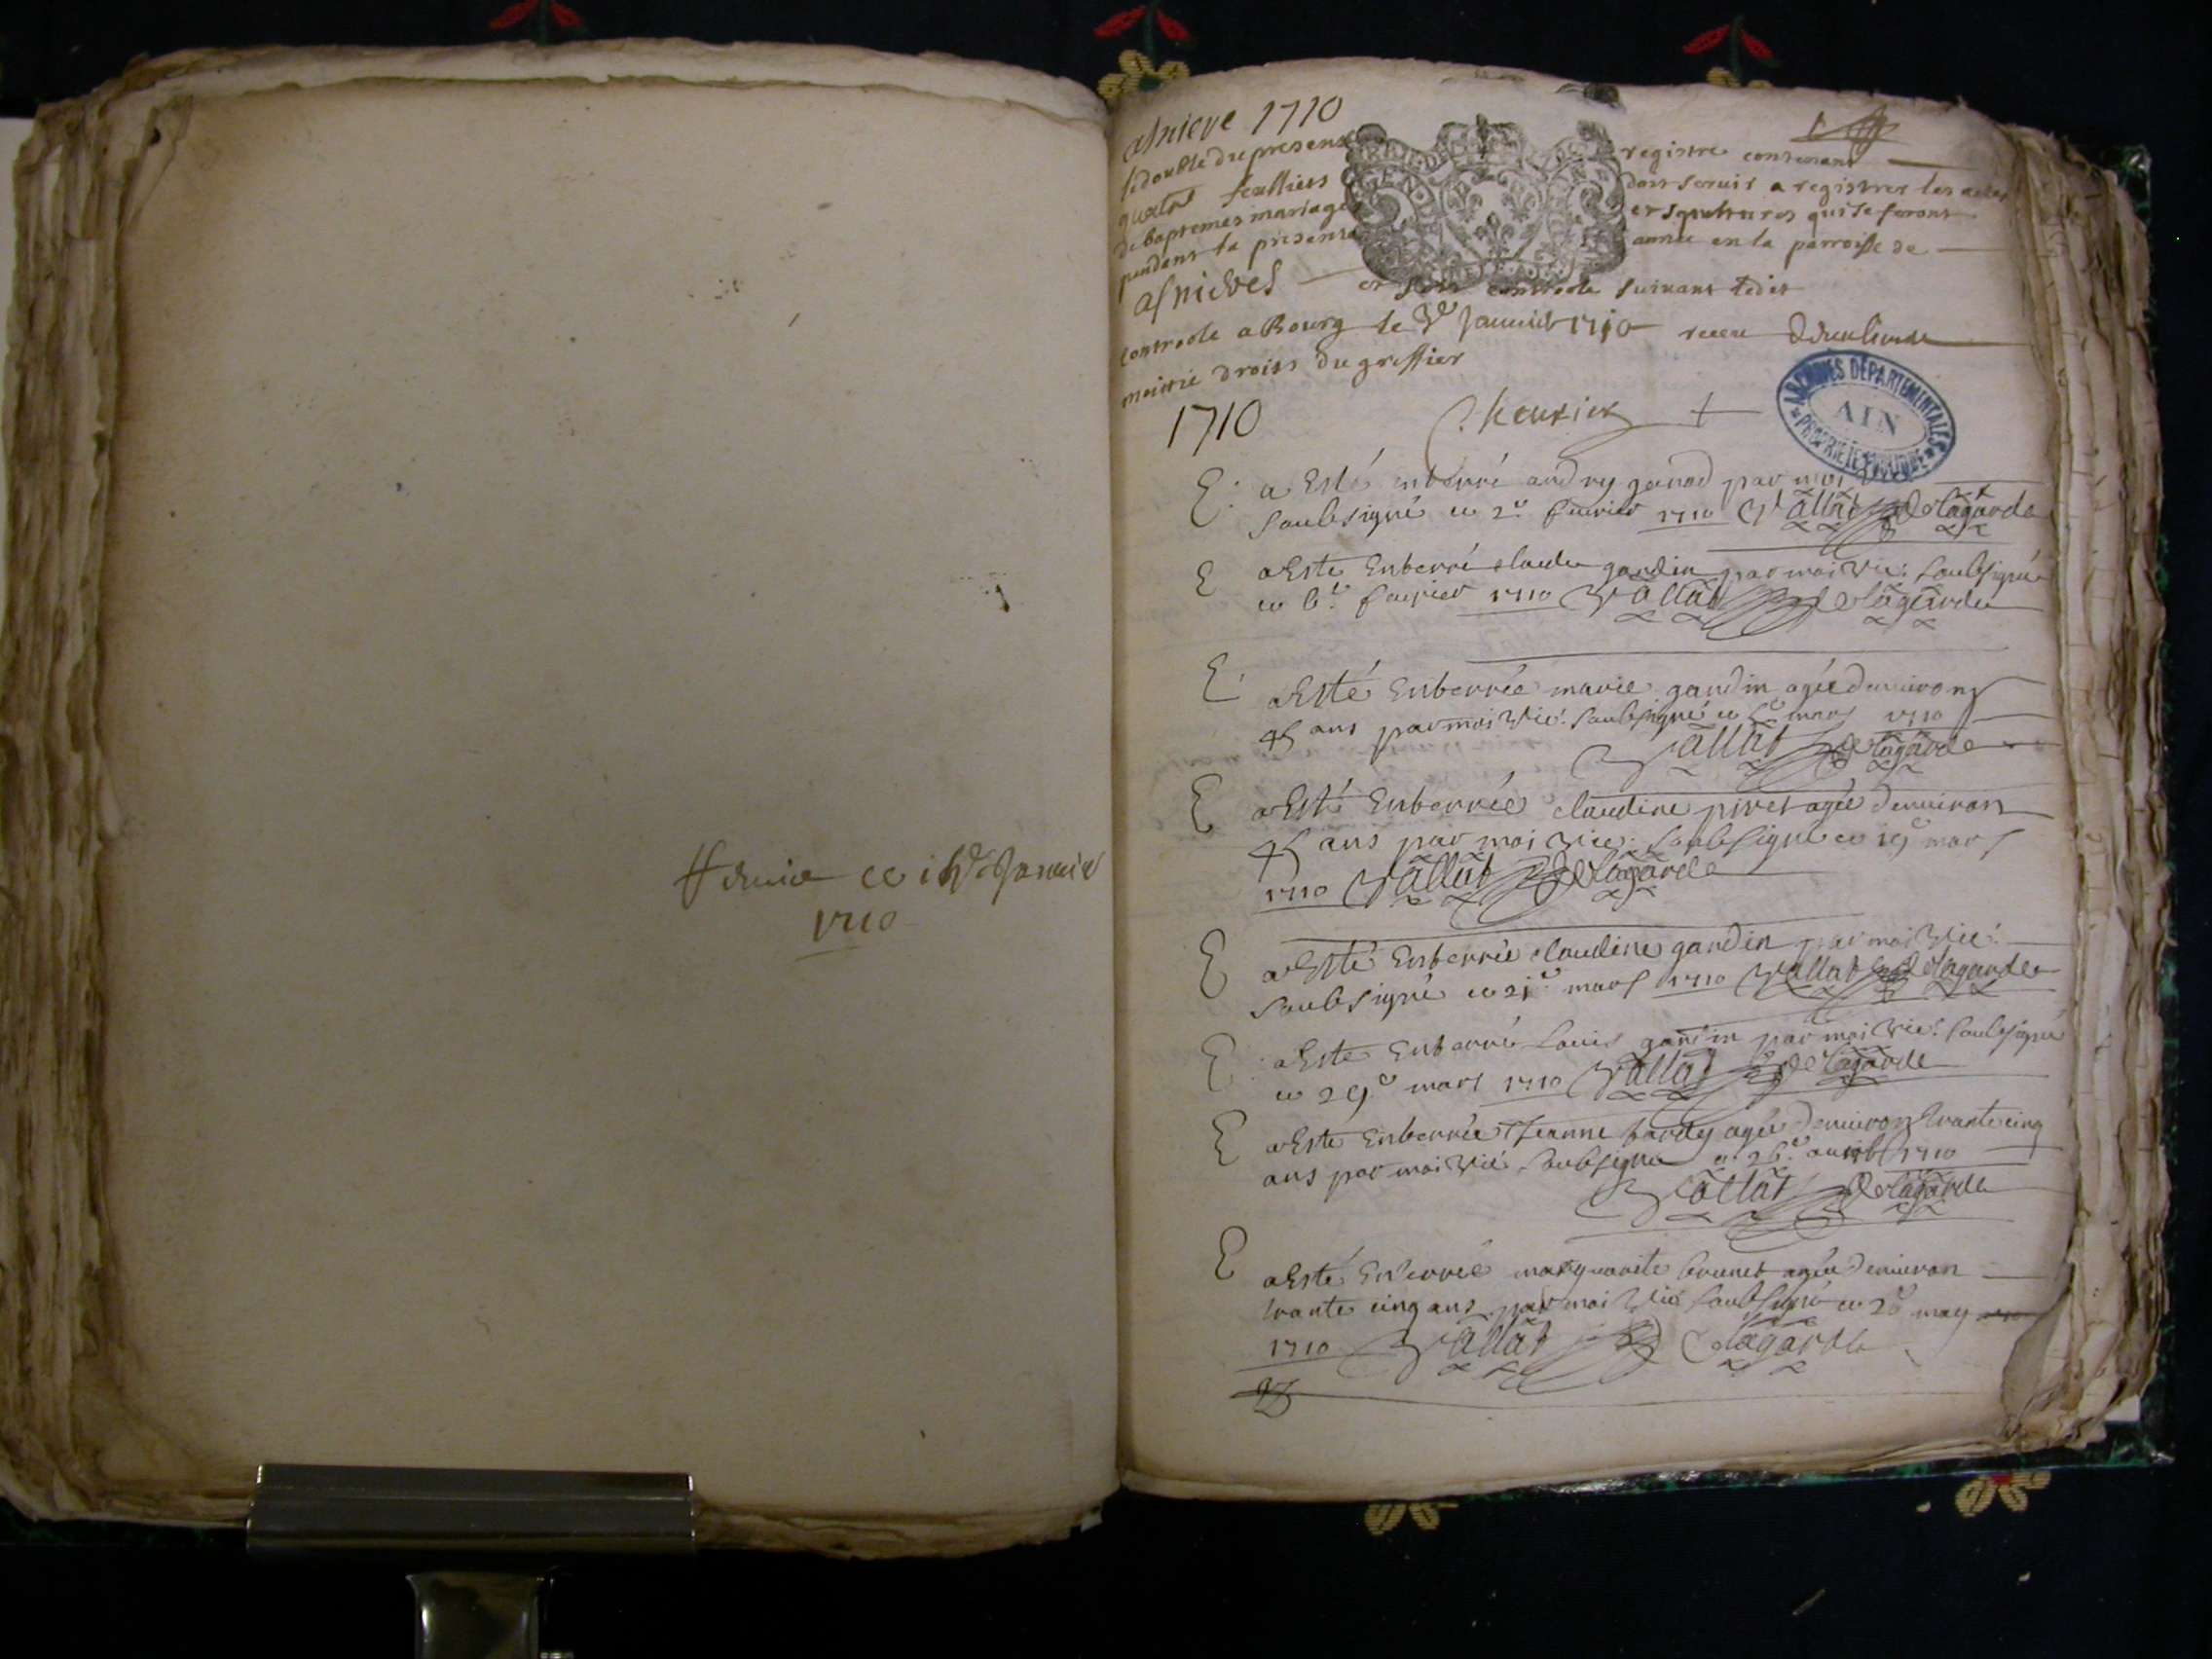 ce Janvie
1710
asnieve 1710
le double du present registre contenant
quatre feulliets doit servir a registrer les actes
de baptemes mariages et sepultures qui se feront
pendant la presente année en la parroisse de
asnieres
et sera controole suivant ledit
controole a Bourg le Janvier 1710 receu
moitié droits du greffier
1710
E. a Esté enterré andry par moi vic
soubsigné ce 2e fevrier 1710 Vallat Delagarde
E a Este Enterré claude gandin par moi vic. soubsigné
ce 6e fevrier 1710 Vallat Delagarde
E. a Esté Enterrée marie gandin agée denviron
45 ans par moi vic. soubsigné ce mars 1710
Vallat Delagarde
E a Esté Enterrée claudine pivet agée denviron
45 ans par moi vic. soubsigné ce 19 mars
1710 Vallat Delagarde
E a Esté Enterrée claudine gandin par moi vic.
soubsigné ce 21e mars 1710 Vallat Delagarde
E a Este Enterré Louis gandin par moi vic. soubsigné
ce 29e mars 1710 Vallat Delagarde
E a Este Enterrée Jeanne agée denviron trante cinq
ans par moi vic. soubsigné ce 26e avril 1710
Vallat Delagarde
E a Esté Enterrée marguarite brunet agée denviron
trante cinq ans par moi vic soubsigné ce may
1710 Vallat Delagarde
ARCHIVES DÉPARTEMENTALES
AIN
PROPRIÉTÉ PUBLIQUE